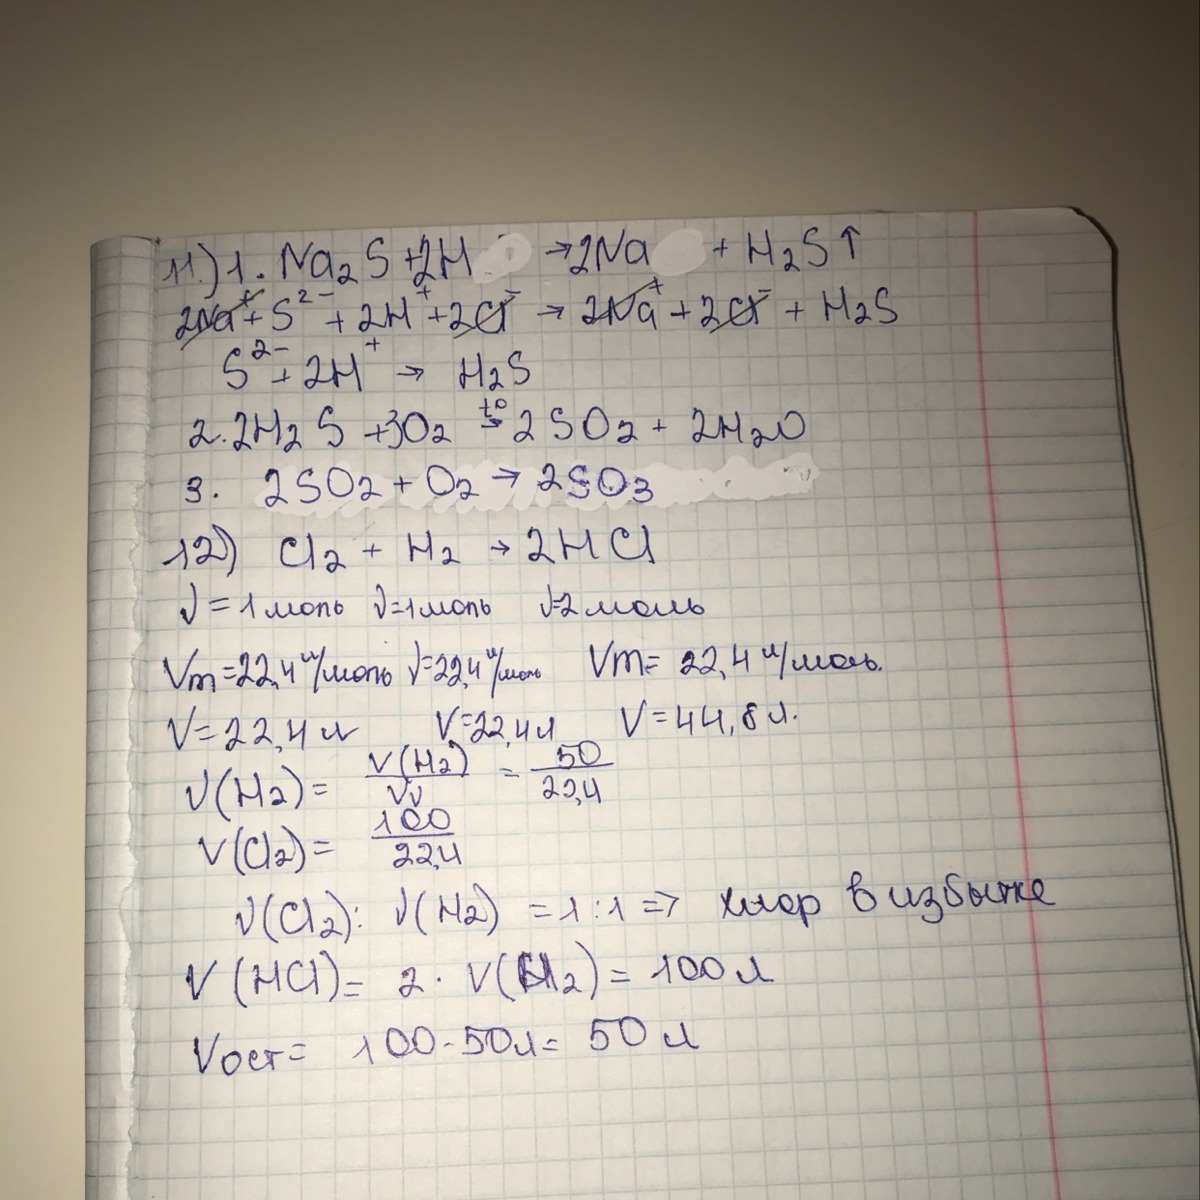 11.) 1. Na2S + 2H → 2Na + H2S↑
2Na⁺ + S²⁻ + 2H⁺ + 2Cl⁻ → 2Na⁺ + 2Cl⁻ + H2S
S²⁻ + 2H⁺ → H2S
2. 2H2S + 3O2 t° → 2SO2 + 2H2O
3. 2SO2 + O2 → 2SO3
12) Cl2 + H2 → 2HCl
ν = 1 моль ν = 1 моль ν = 2 моль
Vm = 22,4 л/моль V = 22,4 л/моль Vm = 22,4 л/моль.
V = 22,4 л V = 22,4 л V = 44,8 л.
ν(H2) = V(H2)/Vν = 50/22,4
ν(Cl2) = 100/22,4
ν(Cl2) : ν(H2) = 1 : 1 => хлор в избытке
V(HCl) = 2 · V(H2) = 100 л
Vост = 100 - 50л = 50 л